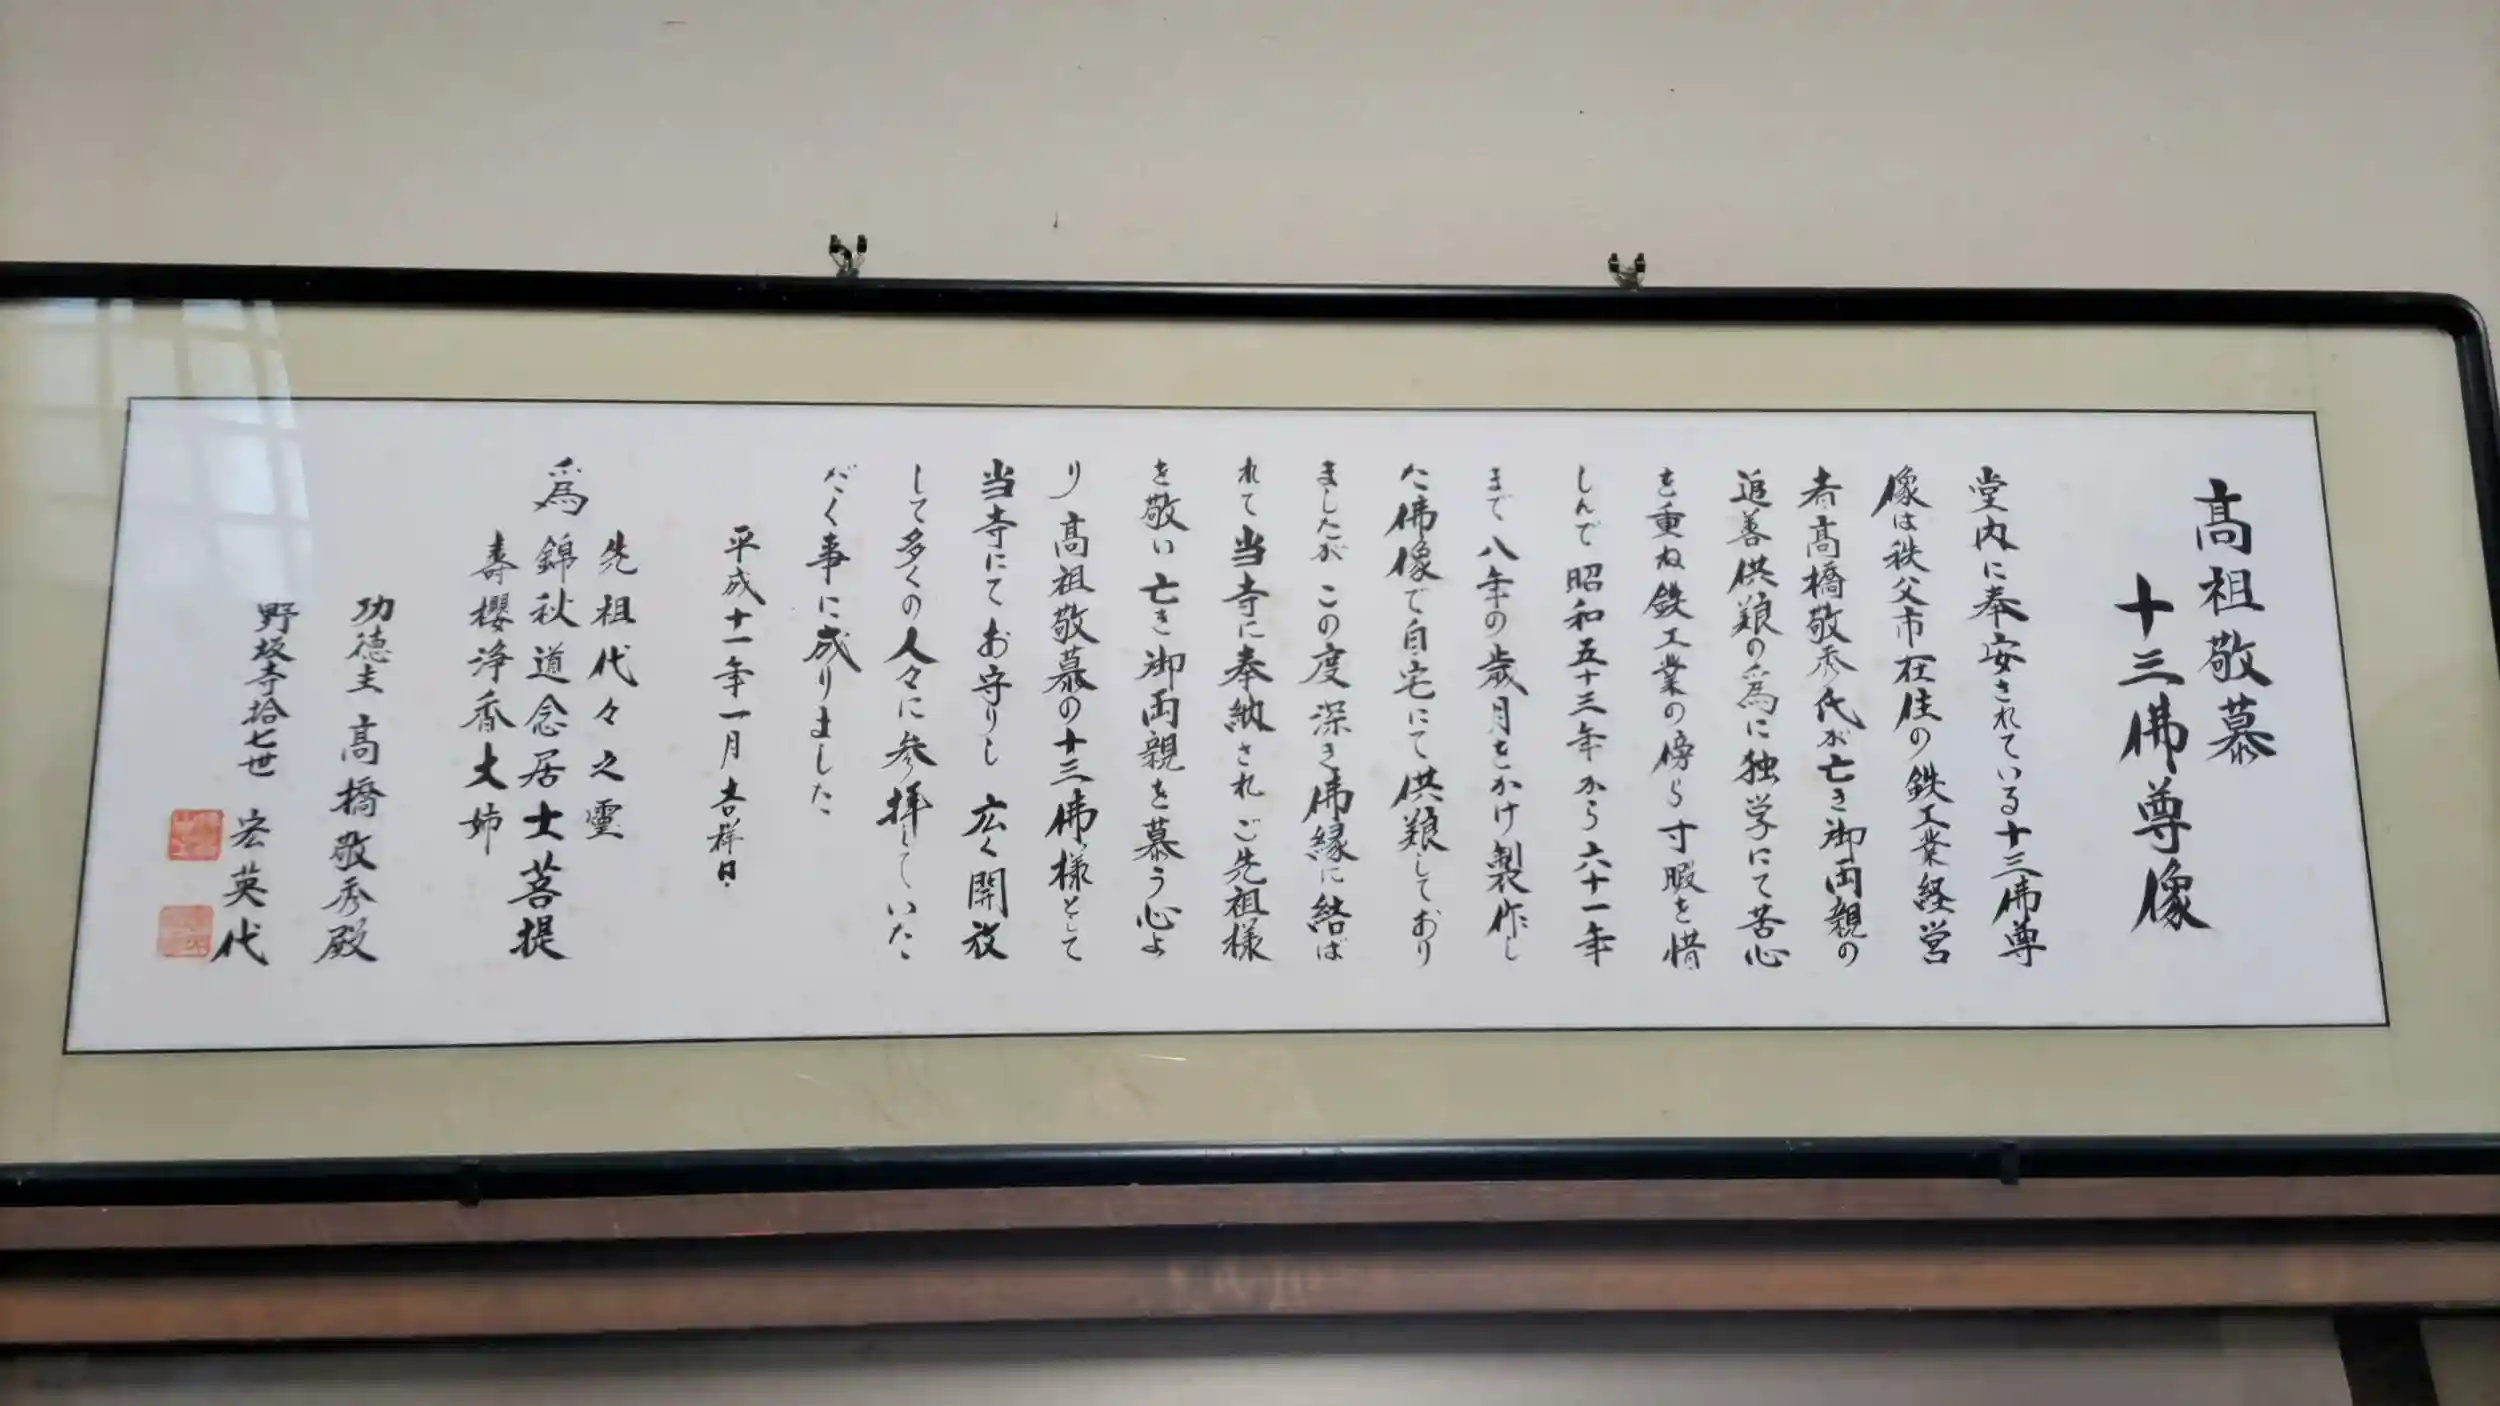 高祖敬慕
十三佛尊像
堂内に奉安されている十三佛尊
像は秩父市在住の鉄工業経営
者高橋敬秀氏が亡き御両親の
追善供養の爲に独学にて苦心
を重ね鉄工業の傍ら寸暇を惜
しんで昭和五十三年から六十一年
まで八年の歳月をかけ製作し
た佛像で自宅にて供養しており
ましたがこの度深き佛縁に結ば
れて当寺に奉納されご先祖様
を敬い亡き御両親を慕う心よ
り高祖敬慕の十三佛様として
当寺にてお守りし広く開放
して多くの人々に参拝していた
だく事に成りました
平成十一年一月吉祥日
先祖代々之霊
爲錦秋道念居士菩提
壽櫻浄香大姉
功徳主高橋敬秀殿
野坂寺拾七世宏英代